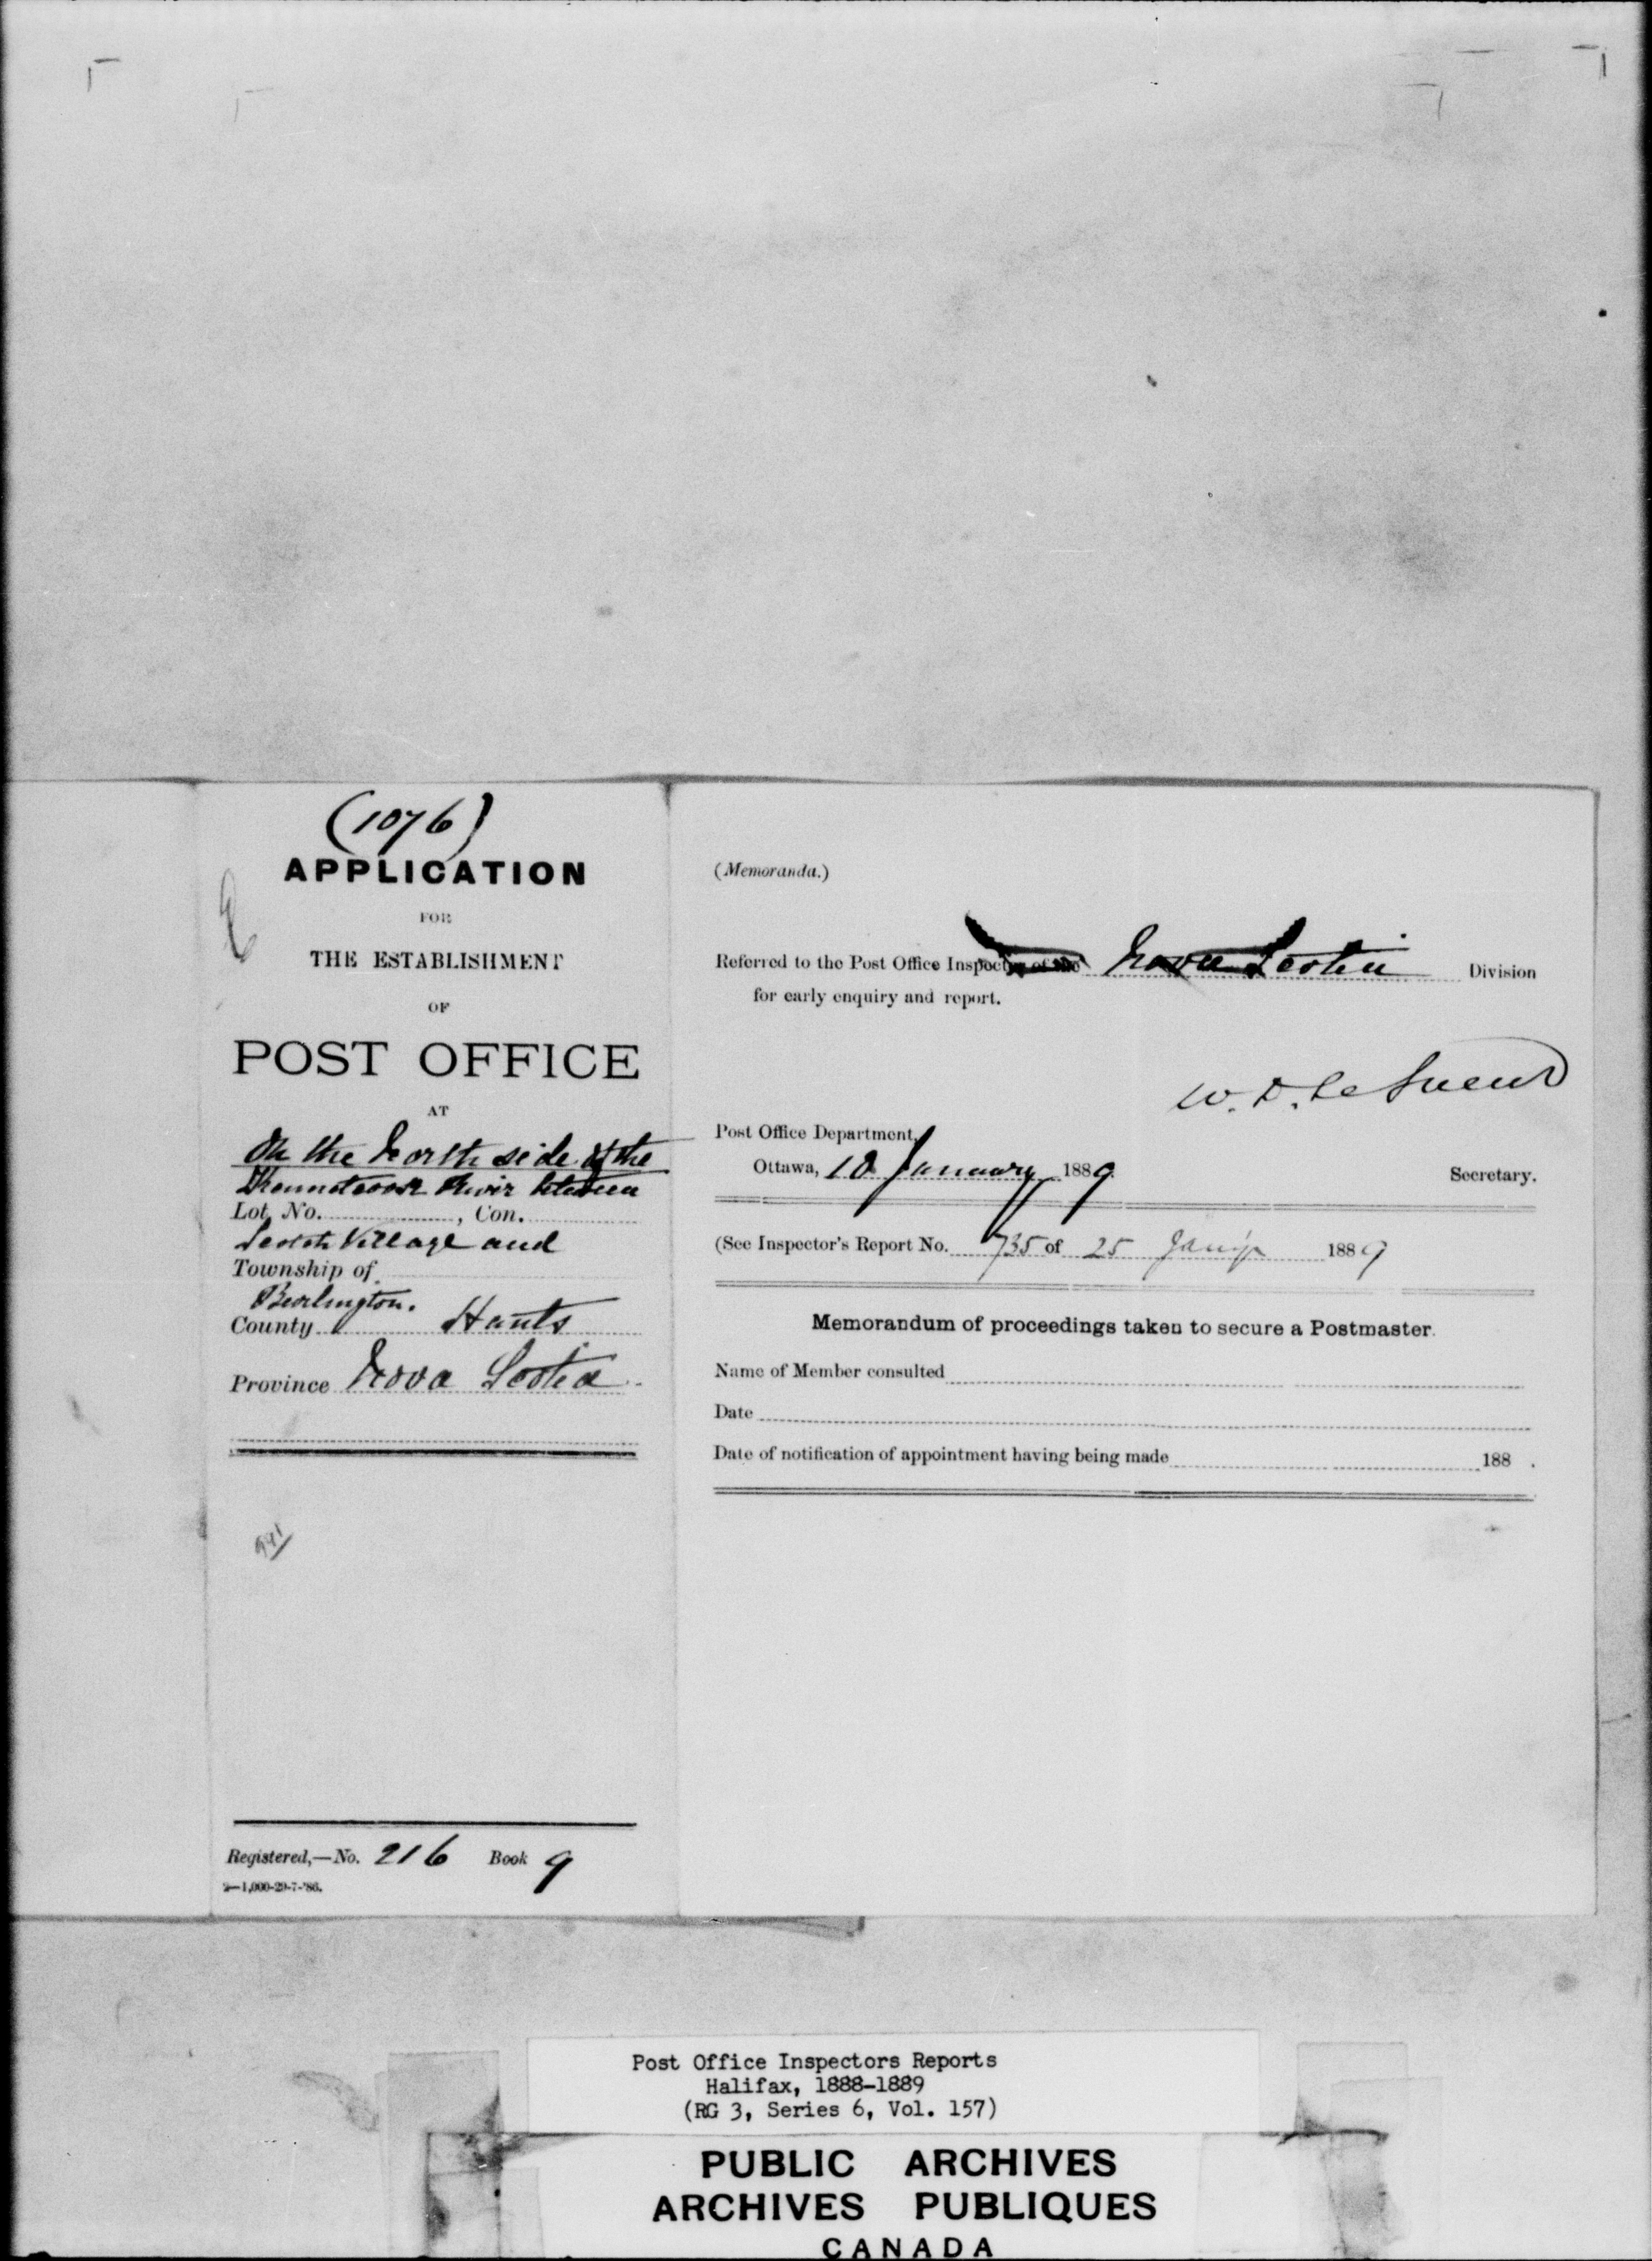 (1076)
APPLICATION
FOR
THE ESTABLISHMENT
OF
POST OFFICE
AT
On the North side of the
River between
Lot, No. , Con.
Scotch Village and
Township of
Burlington.
County Hants
Province Nova Scotia
941
Registered,—No. 216 Book 9
2—1,000-29-7-'86.
(Memoranda.)
Referred to the Post Office Inspector of the Nova Scotia Division
for early enquiry and report.
W. D. Le Sueur
Post Office Department,
Ottawa, 10 January 1889. Secretary.
(See Inspector's Report No. 735 of 25 1889
Memorandum of proceedings taken to secure a Postmaster.
Name of Member consulted
Date
Date of notification of appointment having being made 188 .
Post Office Inspectors Reports
Halifax, 1888-1889
(RG 3, Series 6, Vol. 157)
PUBLIC ARCHIVES
ARCHIVES PUBLIQUES
CANADA